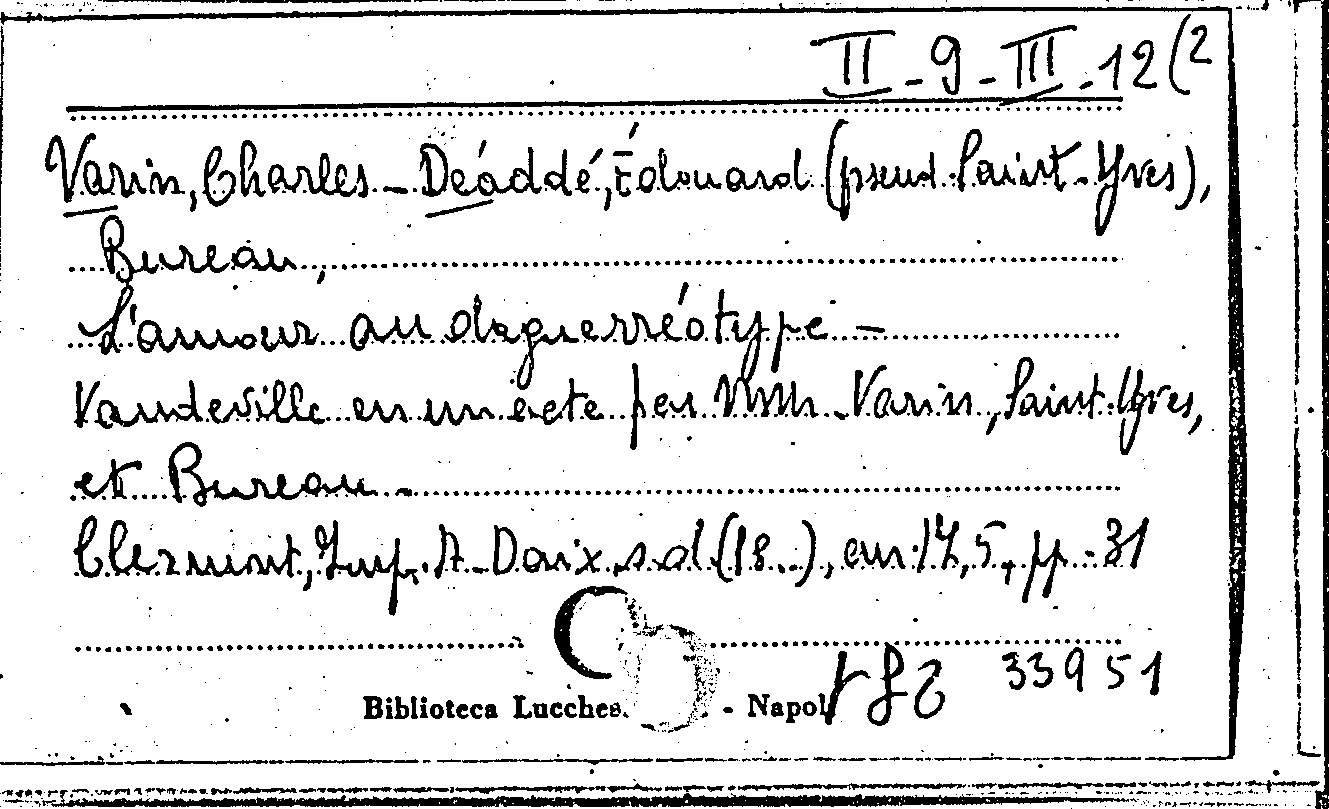 II - 9 - III - 12 (2
Varin, Charles - Déaddé, Édouard (pseud. Saint-Yves),
Bureau,
L'amour au daguerréotype -
Vaudeville en un acte par MM. Varin, Saint-Yves,
et Bureau -
Clermont, Imp. A. Daix, s.d. (18..), cm. 17,5, pp. 31
Biblioteca Lucches. - Napol
33951